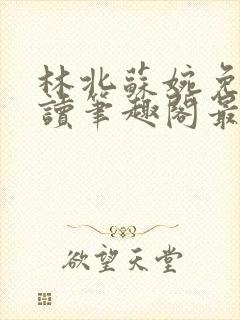 林北蘇婉免
讀筆趣閣最
欲望天堂